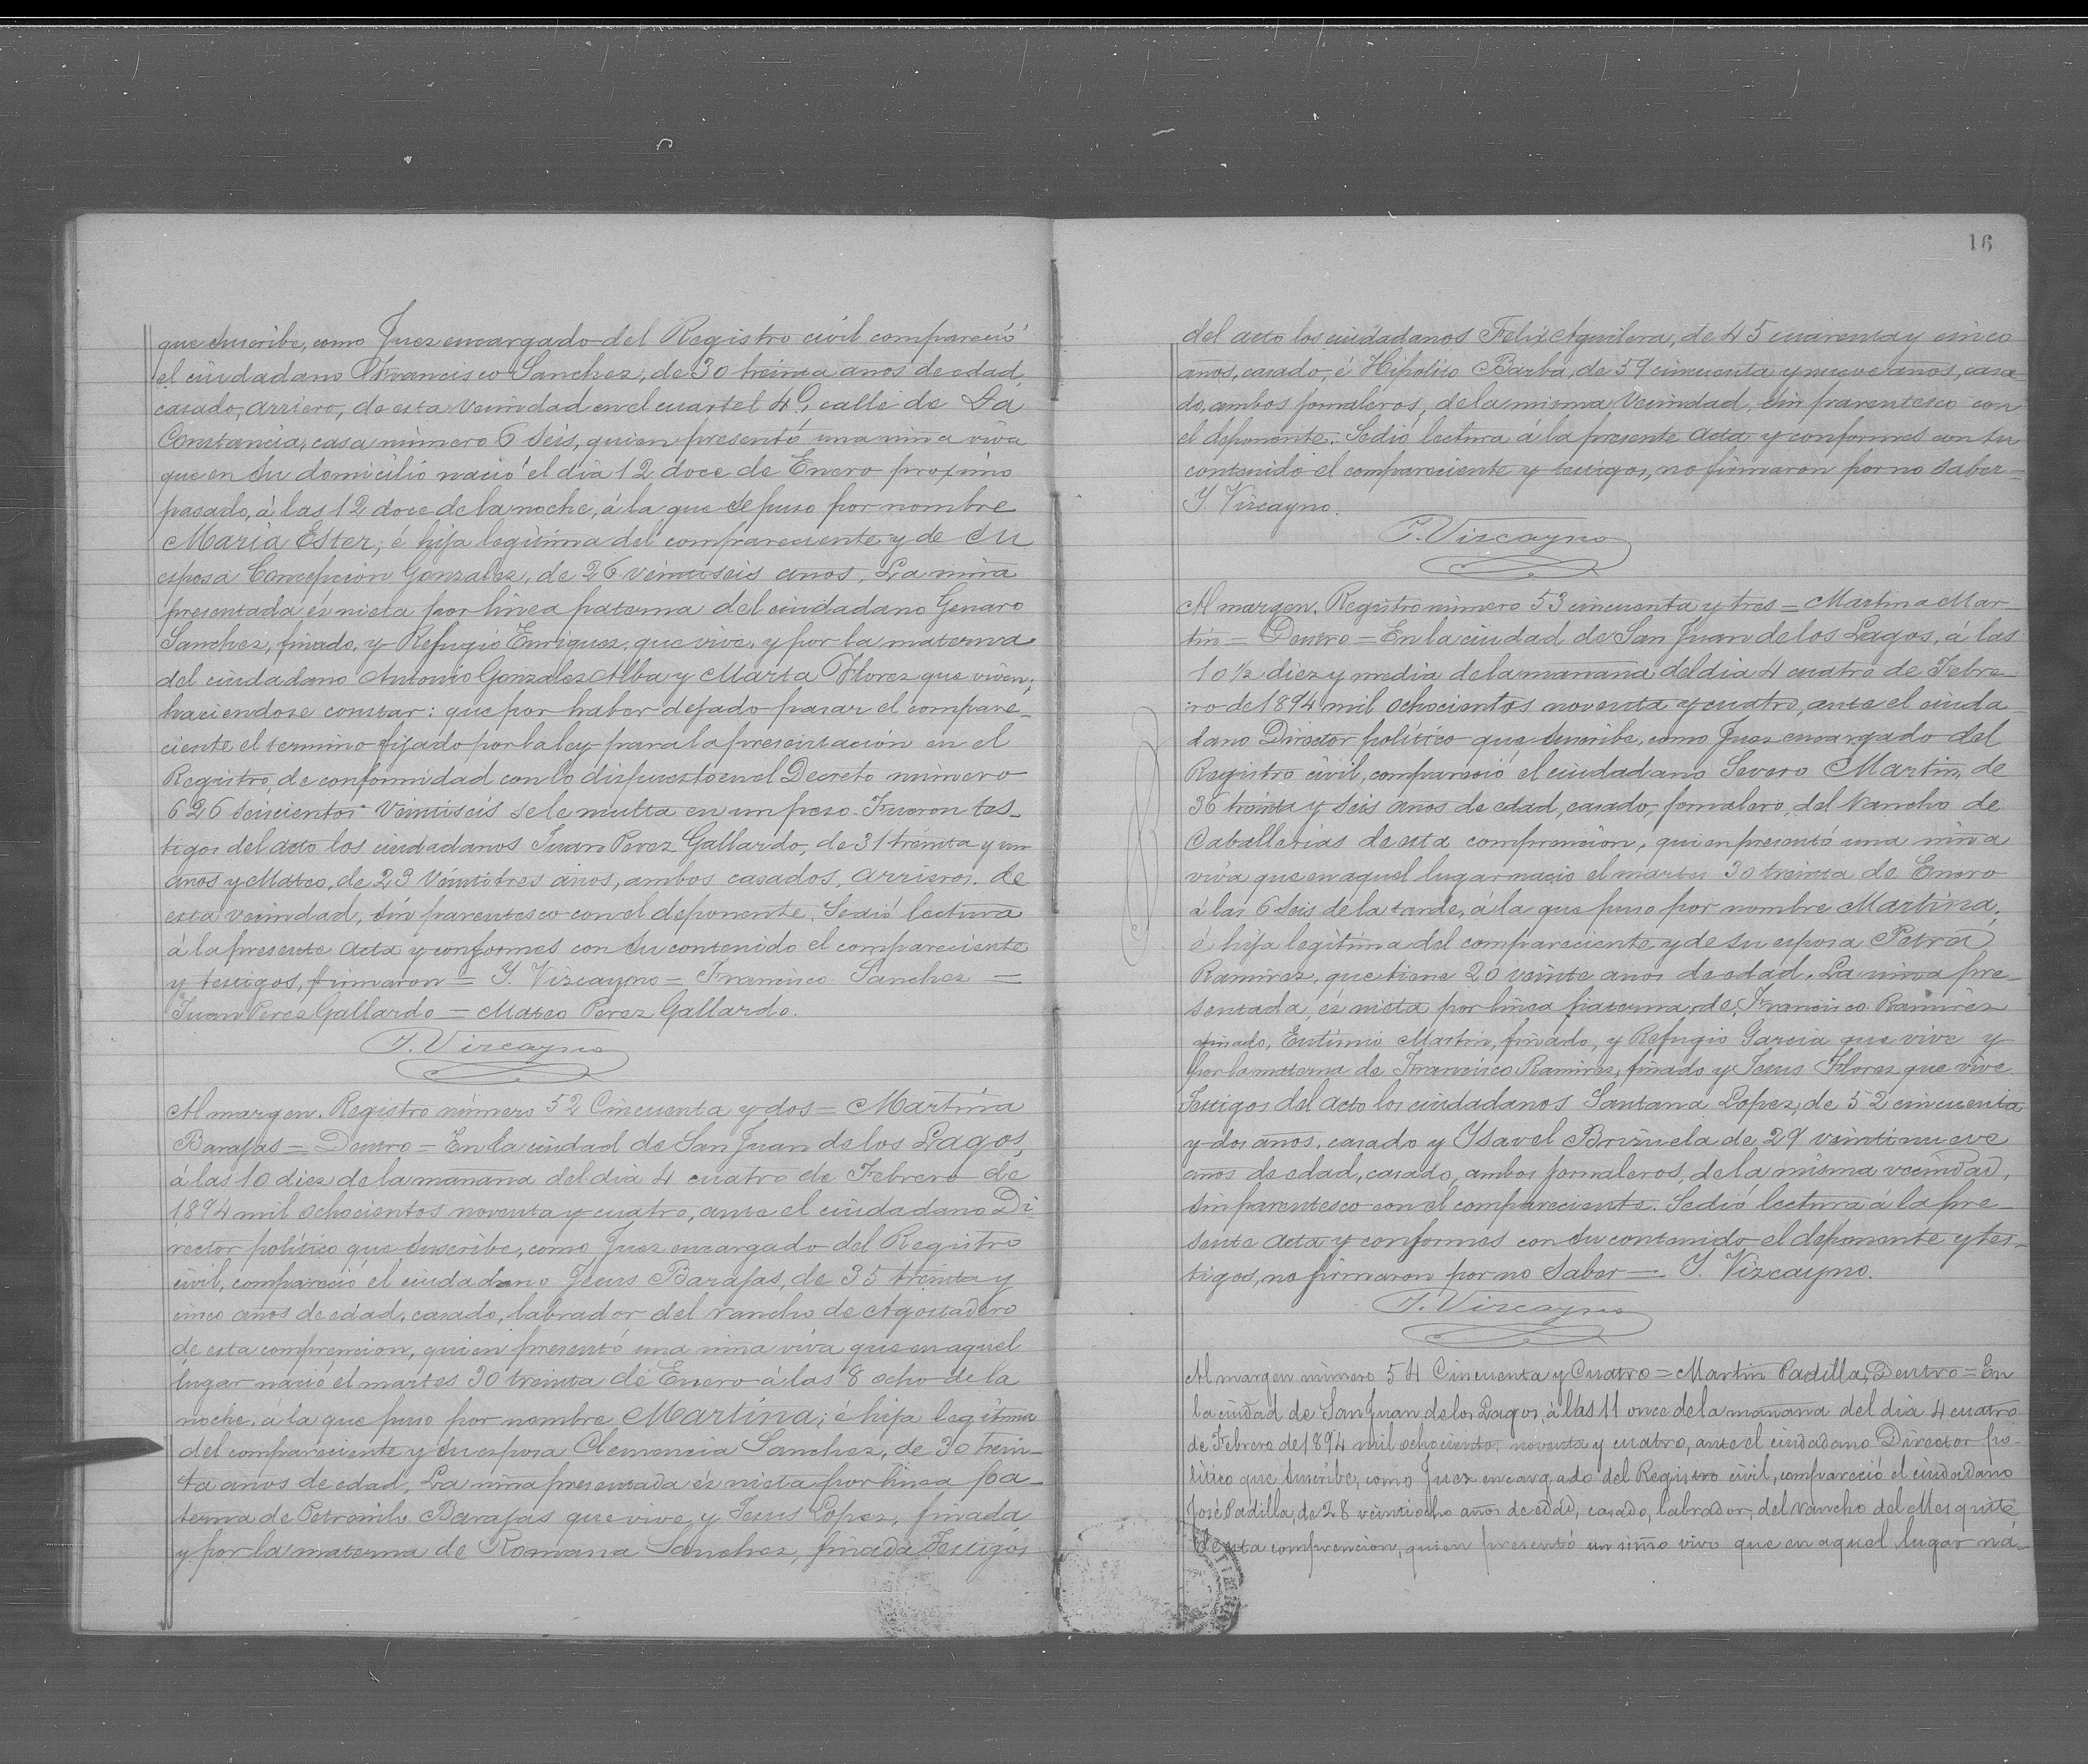 que suscribe, como Juez encargado del Registro civil compareció
el ciudadano Francisco Sanchez, de 30 treinta anos de edad,
casado, arriero, de esta vecindad en el cuartel 4º, calle de La
Constancia, casa número 6 seis, quien presentó una niña viva
que en su domicilio nació el dia 12 doce de Enero proximo
pasado, á las 12 doce de la noche, á la que se puso por nombre
Maria Ester; é hija legitima del compareciente y de su
esposa Concepcion Gonzalez, de 26 veintiseis anos. La niña
presentada és nieta por linea paterna del ciudadano Genaro
Sanchez, finado, y Refugio Enriquez, que vive, y por la materna
del ciudadano Antonio Gonzalez Alba y Marta Flores que viven;
haciendose constar: que por haber dejado pasar el compare-
ciente el termino fijado por la ley para la presentación en el
Registro, de conformidad con lo dispuesto en el Decreto número
626 seiscientos veintiseis se le multa en un peso. Fueron tes-
tigos del acto los ciudadanos Juan Perez Gallardo, de 31 treinta y un
anos y Mateo, de 23 veintitres años, ambos casados, arrieros, de
esta vecindad, sin parentesco con el deponente. Se dió lectura
á la presente acta y conformes con su contenido el compareciente
y testigos, firmaron = Y. Vizcayno = Francisco Sanchez =
Juan Perez Gallardo = Mateo Perez Gallardo.
Y. Vizcayno
Al margen. Registro número 52 Cincuenta y dos = Martina
Barajas = Dentro = En la ciudad de San Juan de los Lagos,
á las 10 diez de la mañana del dia 4 cuatro de Febrero de
1894 mil ochocientos noventa y cuatro, ante el ciudadano Di-
rector político que suscribe, como Juez encargado del Registro
civil, compareció el ciudadano Jesus Barajas, de 35 treinta y
cinco años de edad, casado, labrador del rancho de Agostadero
de esta comprencion, quien presentó una niña viva que en aquel
lugar nació el martes 30 treinta de Enero á las 8 ocho de la
noche, á la que puso por nombre Martina; é hija legitima
del compareciente y su esposa Clemencia Sanchez, de 30 trein-
ta años de edad, La niña presentada és nieta por linea pa-
terna de Petronilo Barajas que vive, y Jesus Lopez, finada
y por la materna de Romana Sanchez, finada Testigos
16
del acto los ciudadanos Felix Aguilera, de 45 cuarenta y cinco
años, casado, é Hipolito Barba, de 59 cincuenta y nueve años, casa-
do, ambos jornaleros, de la misma vecindad, sin parentesco con
el deponente. Se dió lectura á la presente acta y conformes con su
contenido el compareciente y testigos, no firmaron por no saber =
Y. Vizcayno.
Y. Vizcayno
Al margen. Registro número 53 cincuenta y tres = Martina Mar-
tin = Dentro = En la ciudad de San Juan de los Lagos, á las
10 ½ diez y media de la mañana del dia 4 cuatro de Febre-
ro de 1894 mil ochocientos noventa y cuatro, ante el ciuda-
dano Director político que suscribe, como Juez encargado del
Registro civil, compareció el ciudadano Severo Martin, de
36 treinta y seis años de edad, casado, jornalero, del rancho de
Caballerias de esta comprencion, quien presentó una niña
viva que en aquel lugar nació el martes 30 treinta de Enero
á las 6 seis de la tarde, á la que puso por nombre Martina;
é hija legítima del compareciente y de su esposa Petra
Ramirez, que tiene 20 veinte anos de edad. La niña pre-
sentada, és nieta por linea paterna, de, Francisco Ramirez
finado, Eutimio Martin, finado, y Refugio Garcia que vive y
por la materna de Francisco Ramirez, finado y Jesus Flores que vive.
Testigos del acto los ciudadanos Santana Lopez, de 52 cincuenta
y dos años, casado y Ysavel Brizuela de 29 veintinueve
años de edad, casado, ambos jornaleros, de la misma vecindad,
sin parentesco con el compareciente. Se dió lectura á la pre-
sente acta y conformes con su contenido el deponente y tes-
tigos, no firmaron por no saber = Y. Vizcayno.
Y. Vizcayno
Al margen número 54 Cincuenta y Cuatro = Martin Padilla, Dentro = En
la ciudad de San Juan de los Lagos, á las 11 once de la mañana del dia 4 cuatro
de Febrero de 1894 mil ochocientos noventa y cuatro, ante el ciudadano Director po-
litico que suscribe, como Juez encargado del Registro civil, compareció el ciudadano
José Padilla, de 28 veintiocho años de edad, casado, labrador, del rancho del Mesquite
de esta comprencion, quien presentó un niño vivo que en aquel lugar na-